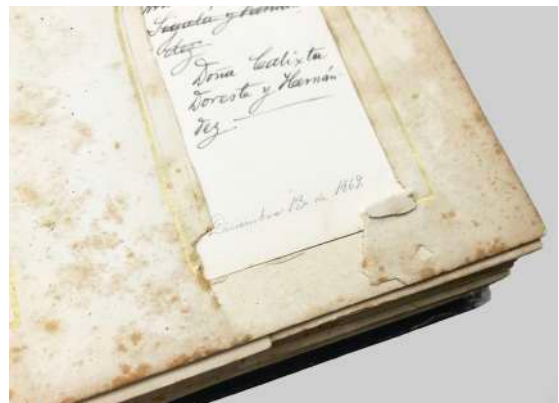 Segalá y Hernán
dez
Doña Calixta
Doreste y Hernán
dez
Diciembre 13 de 1862